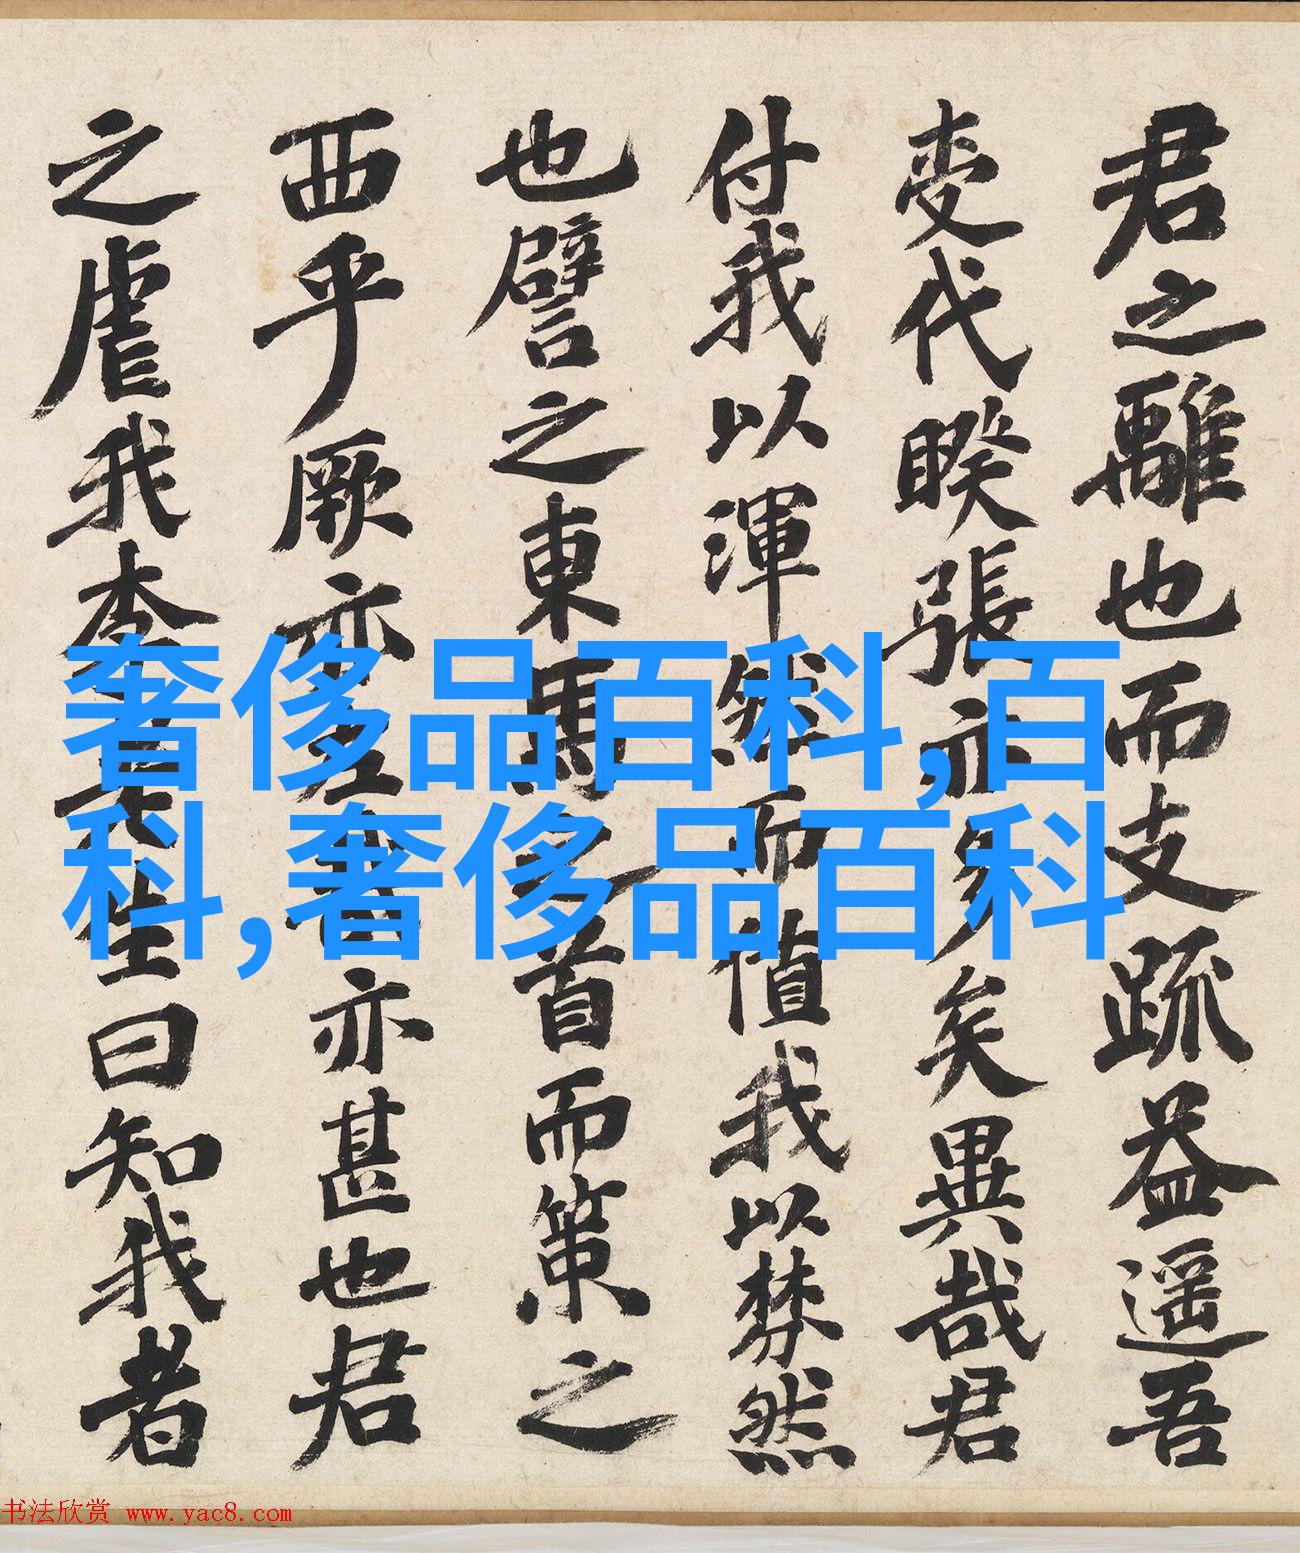 君之離也而支疏益遥吾
变代睽張亦多矣異哉君
付我以渾然而值我以棼然
也譬之東馬之首而策之
西乎厥亦左者亦甚也君
之虐我李先生曰知我者
奢侈品百科,百
科,奢侈品百科
书法欣赏 www.yac8.com